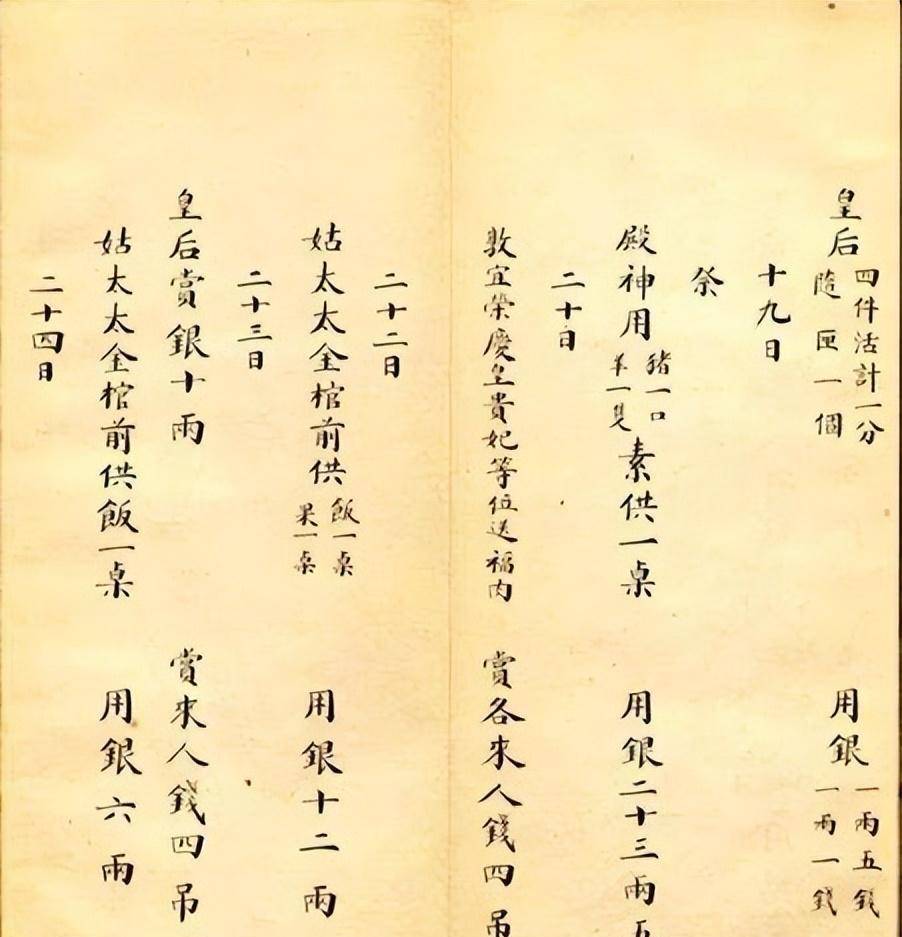 皇后四件活計一分隨匣一個 用銀一兩五錢一兩一錢
十九日
祭
殿神用豬一口羊一隻素供一桌 用銀二十三兩五
二十日
敦宜榮慶皇貴妃等位送福肉 賞各來人錢四吊
二十二日
姑太太金棺前供飯一桌果一桌 用銀十二兩
二十三日
皇后賞銀十兩 賞來人錢四吊
姑太太金棺前供飯一桌 用銀六兩
二十四日